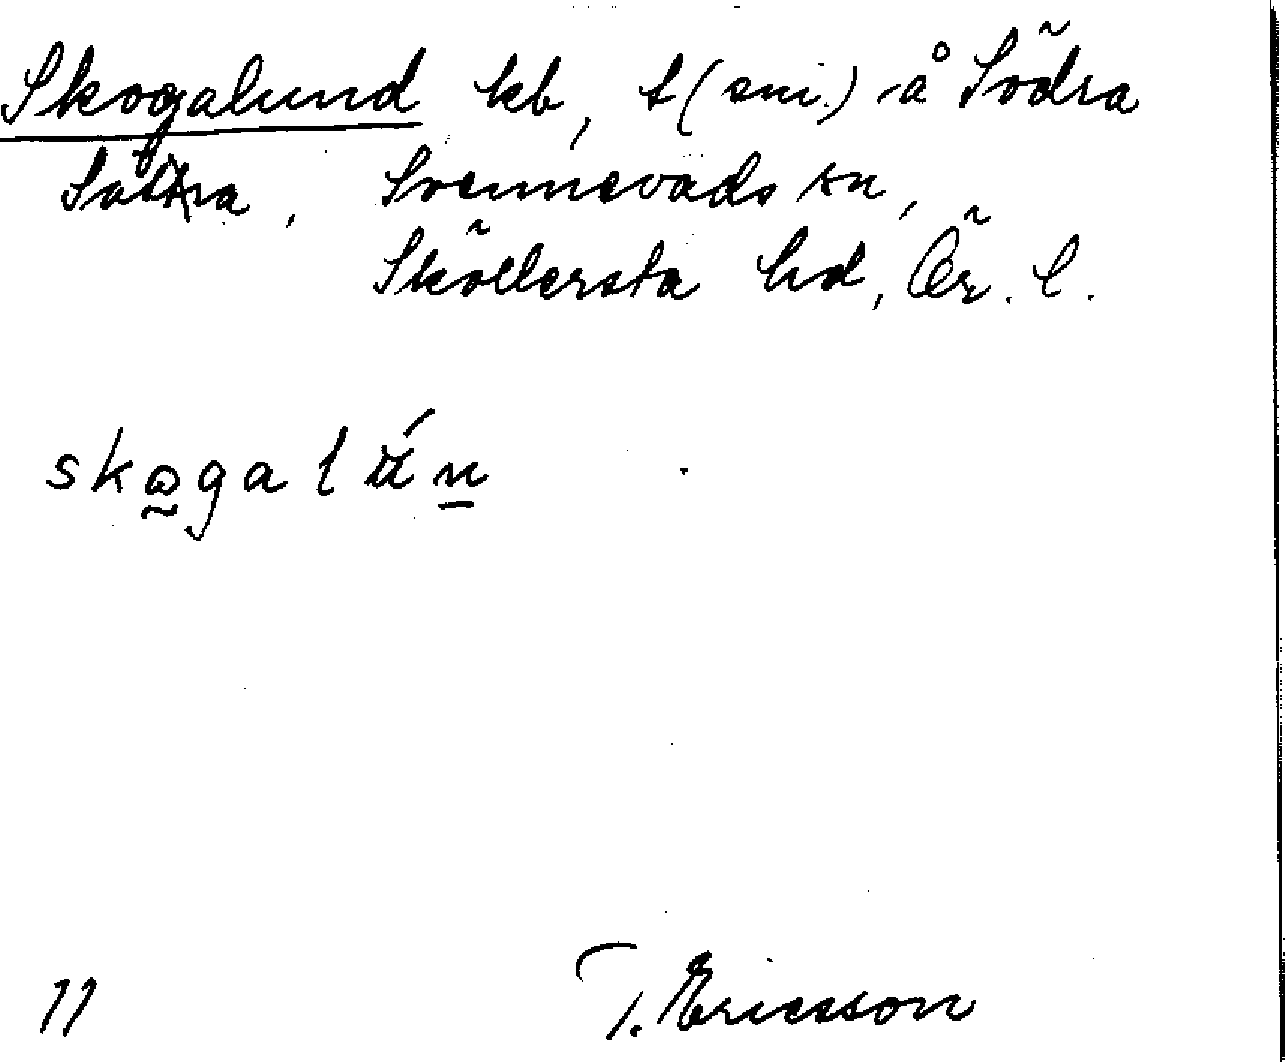 Skogalund kb, t (sni.) å Södra
Sätra, Svennevads sn,
Sköllersta hd, Ör. l.
skogalún
11
T. Ericsson